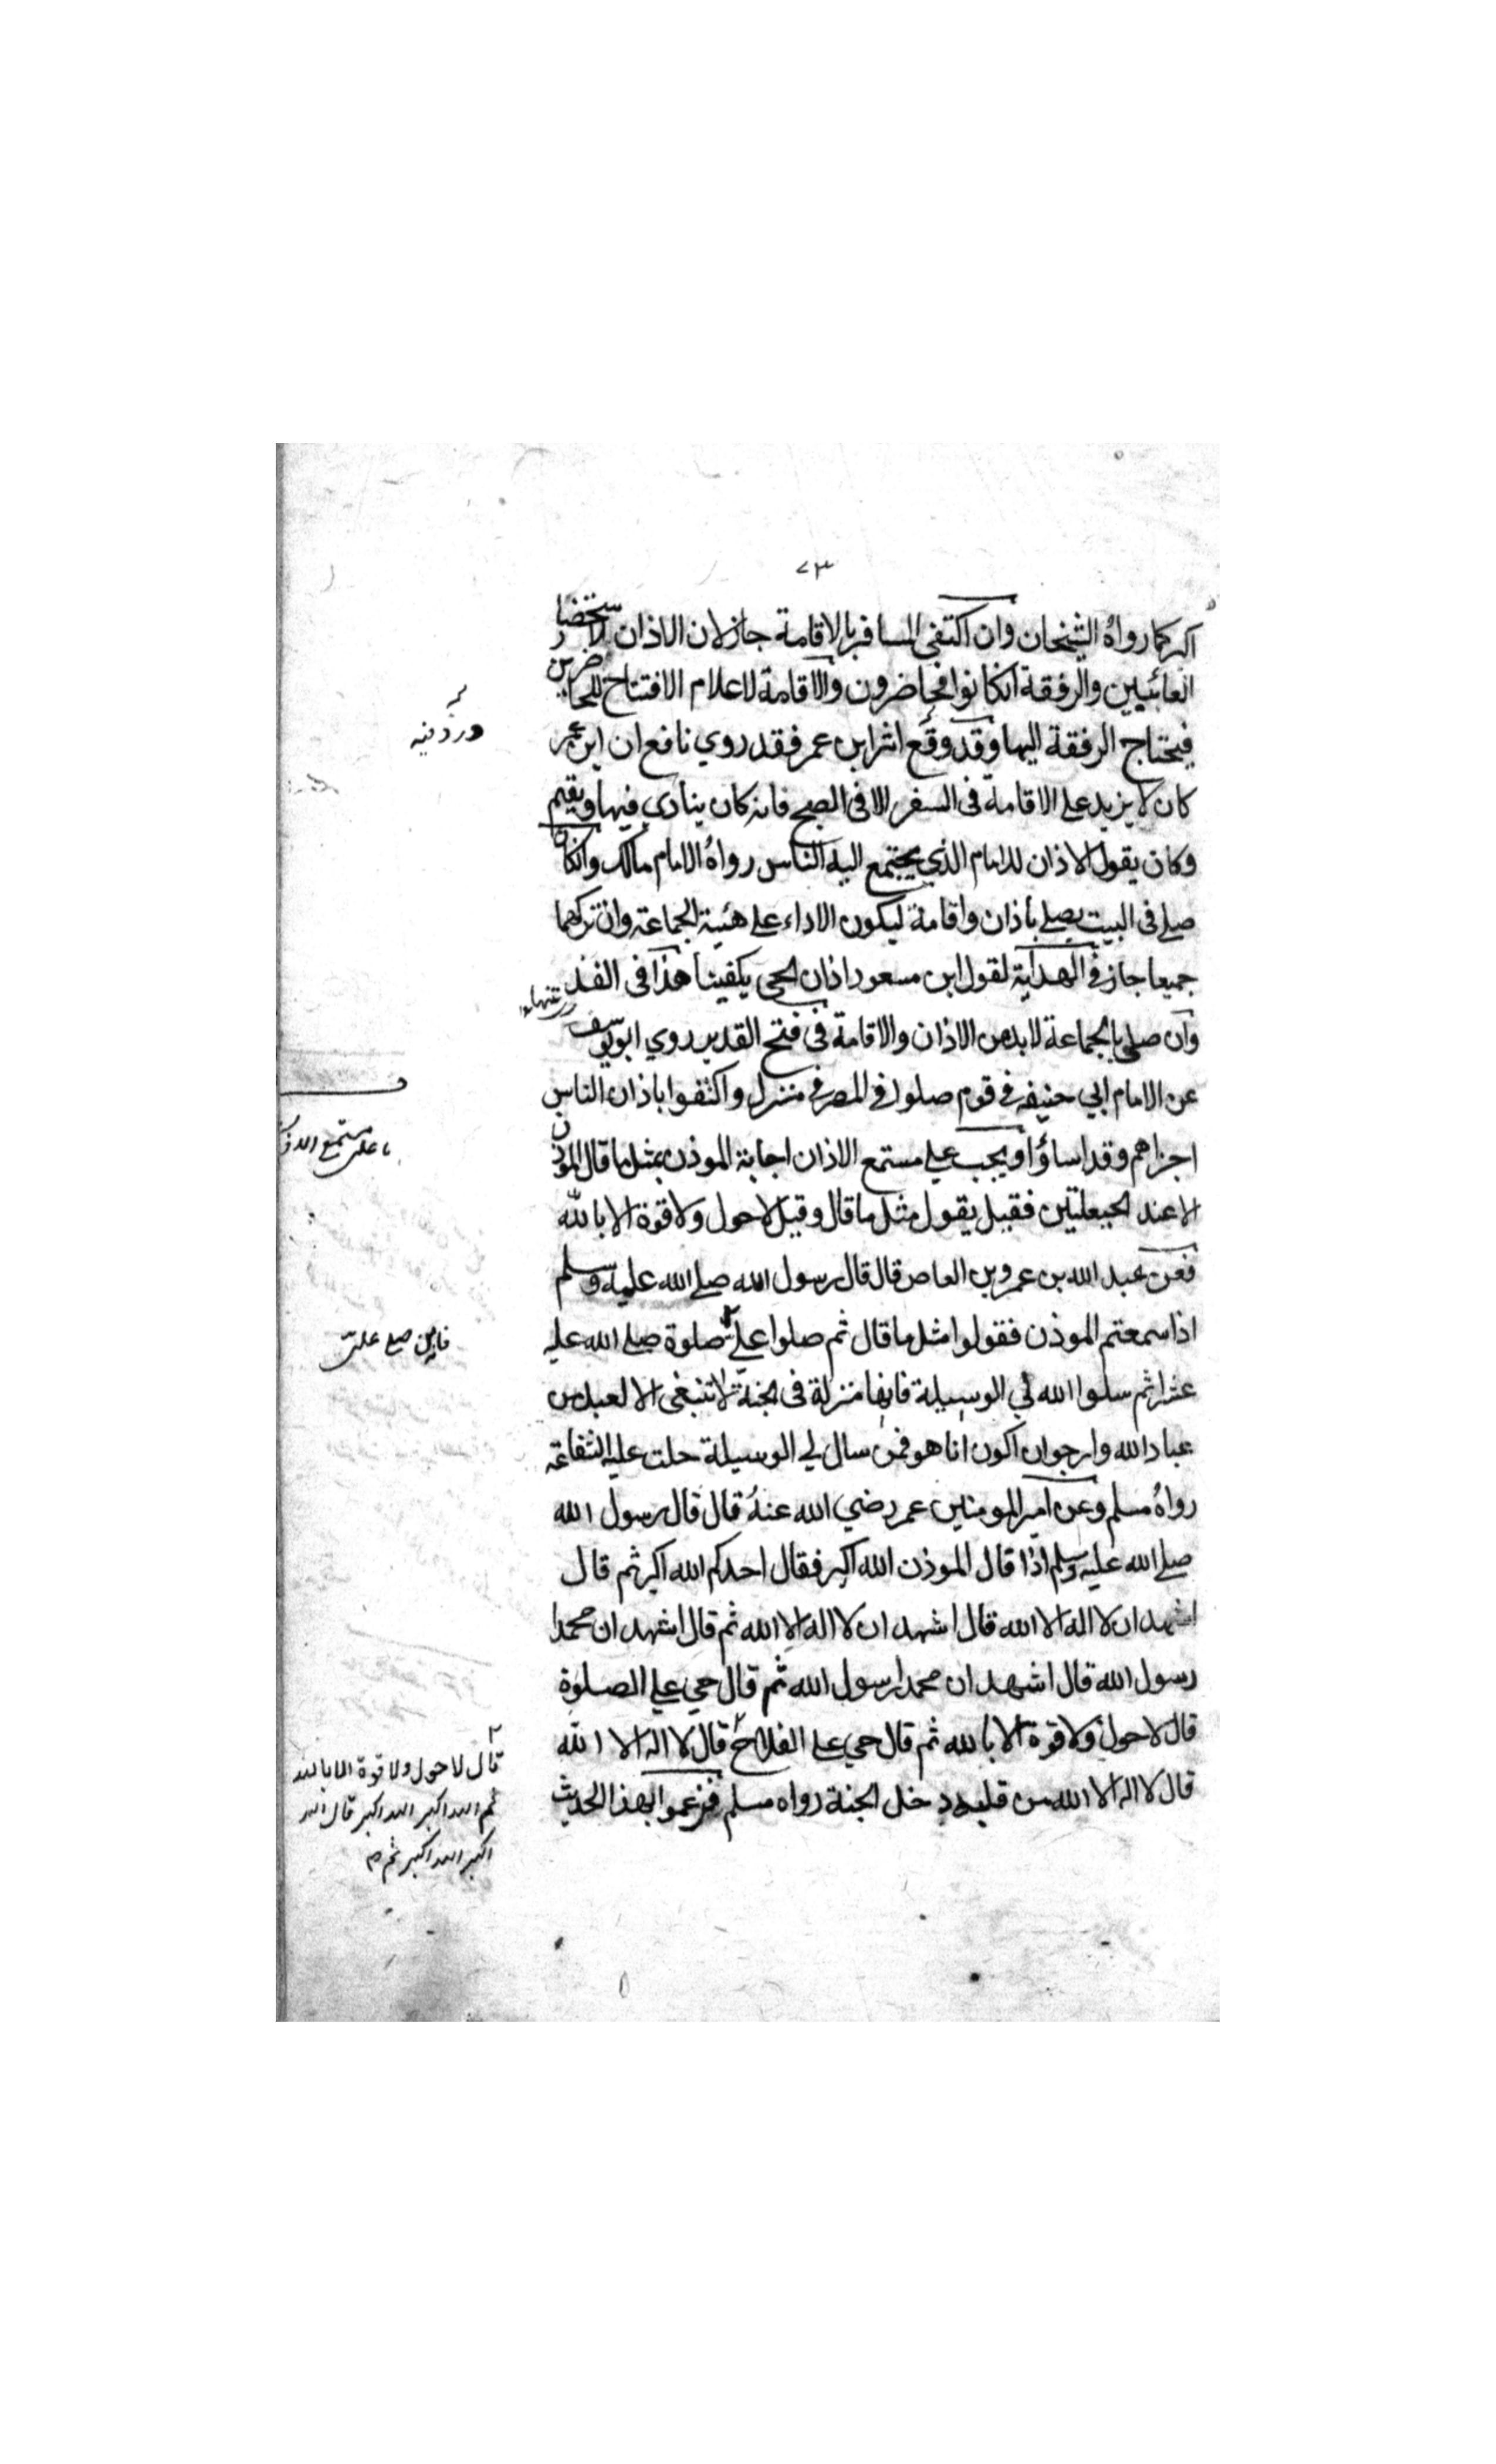 ٧٣
اكبر كما رواه الشيخان وان اكتفى المسافر بالاقامة جاز لان الاذان لاستحضار
الغائبين والرفقة انكانوا فحاضرون والاقامة لاعلام الافتتاح للحاضرين
فيحتاج الرفقة اليها وقد وقع اثر ابن عمر فقد روي نافع ان ابن عمر
كان لا يزيد على الاقامة في السفر الا في الصبح فانه كان ينادي فيها ويقيم
وكان يقول الاذان للامام الذي يجتمع اليه الناس رواه الامام مالك وانكان
صلي في البيت يصلي باذان واقامة ليكون الاداء على هئية الجماعة وان تركهما
جميعا جاز في الهداية لقول ابن مسعود اذان الحي يكفينا هذا في الفذ
وان صلى بالجماعة لابد من الاذان والاقامة في فتح القدير روي ابو يوسف
عن الامام ابي حنيفه في قوم صلوا في المصر في منزل واكتفوا باذان الناس
اجزاهم وقد اساؤا ويجب علي مستمع الاذان اجابة الموذن بمثل ما قال الموذن
الا عند الحيعلتين فقيل يقول مثل ما قال وقيل لا حول ولا قوة الا بالله
فعن عبد الله بن عمرو بن العاص قال قال رسول الله صلى الله عليه وسلم
اذا سمعتم الموذن فقولوا مثل ما قال ثم صلوا علي صلوة صلى الله عليه
عشرا ثم سلوا الله لي الوسيلة فانها منزلة في الجنة لا تنبغى الا لعبد من
عباد الله وارجو ان اكون انا هو فمن سال لي الوسيلة حلت عليه الشفاعة
رواه مسلم وعن امير المومنين عمر رضي الله عنه قال قال رسول الله
صلى الله عليه وسلم اذا قال الموذن الله اكبر فقال احدكم الله اكبر ثم قال
اشهد ان لا اله الا الله قال اشهد ان لا اله الا الله ثم قال اشهد ان محمدا
رسول الله قال اشهد ان محمدا رسول الله ثم قال حي على الصلوة
قال لا حول ولا قوة الا بالله ثم قال حي على الفلاح قال لا اله الا الله
قال لا اله الا الله من قلبه دخل الجنة رواه مسلم فزعموا بهذا الحديث
على مستمع
صلى على
قال لا حول ولا قوة الا بالله
ثم الله اكبر الله اكبر قال الله
اكبر الله اكبر ثم